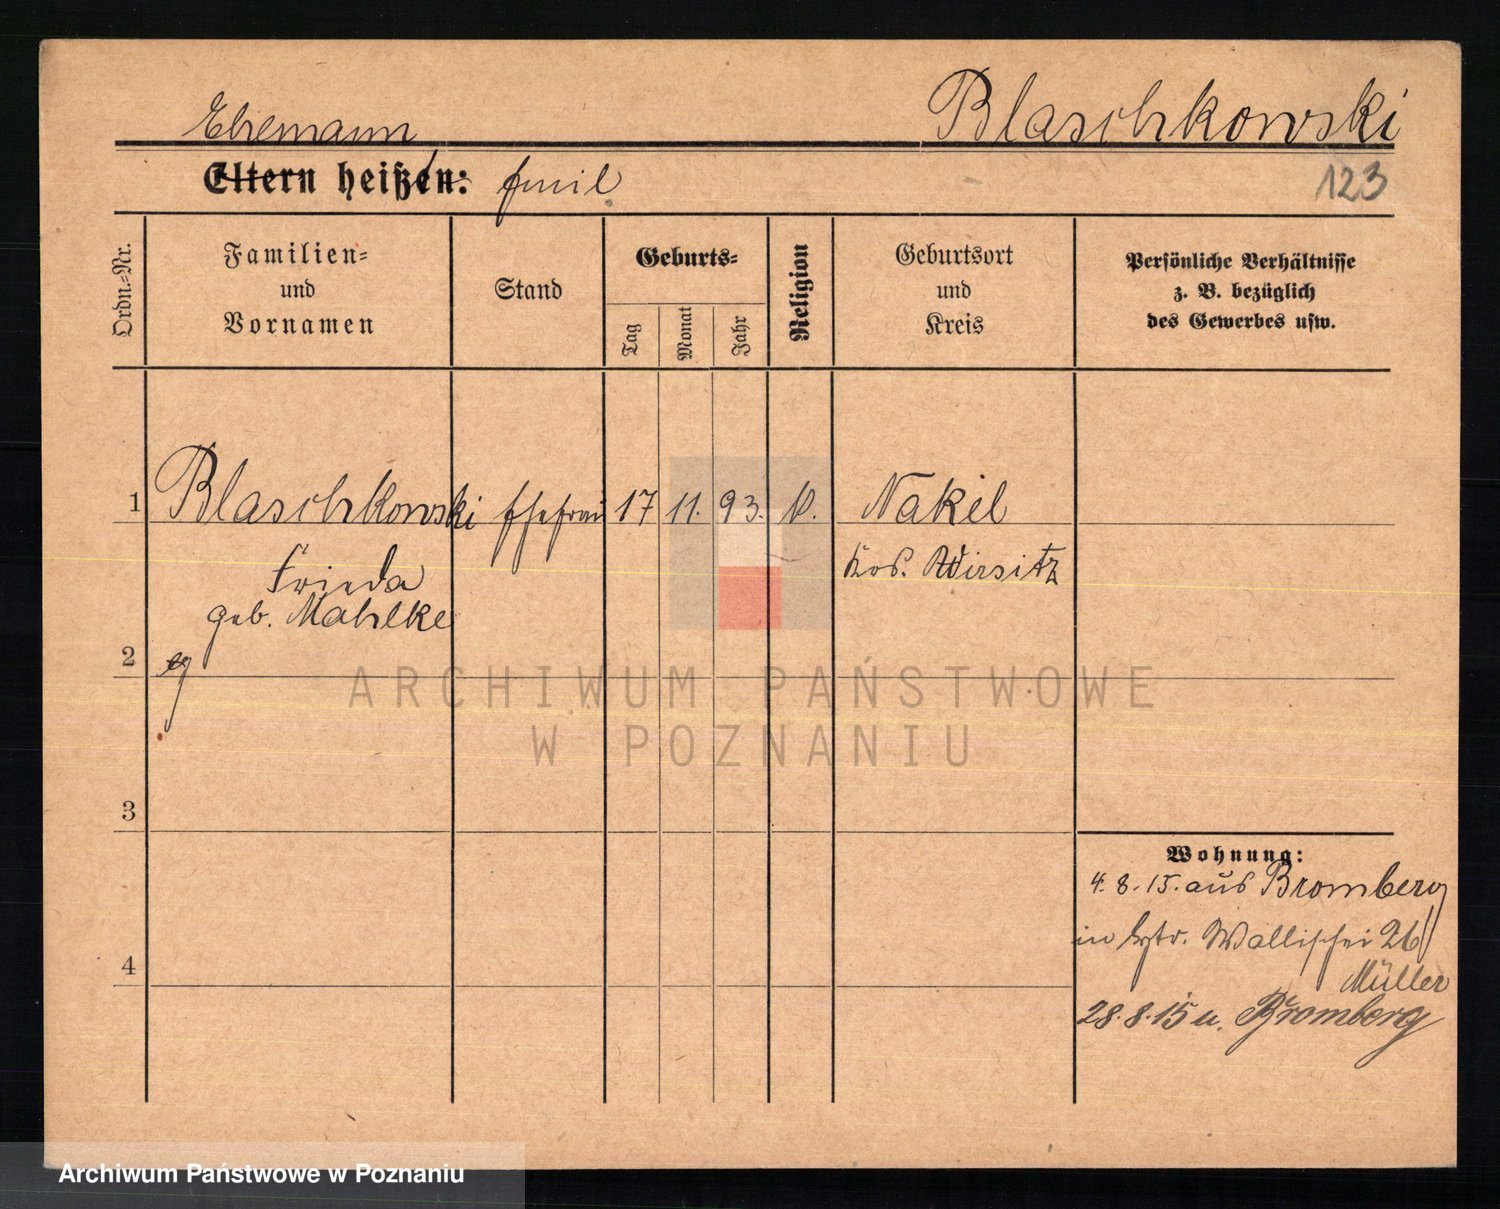 Blaschkowski
Ehemann
Eltern heißen: Emil
123
Ordn.-Nr.
Familien-
und
Vornamen
Stand
Geburts-
Tag
Monat
Jahr
Religion
Geburtsort
und
Kreis
Persönliche Verhältnisse
z. B. bezüglich
des Gewerbes usw.
1 Blaschkowski Ehefrau 17 11. 93. Nakel
Wirsitz
Frieda
geb. Mahlke
2
3
4
Wohnung:
4. 8. 15. aus Bromberg
in Wallischei 26
Müller
28. 8. 15 n. Bromberg
ARCHIWUM PAŃSTWOWE
W POZNANIU
Archiwum Państwowe w Poznaniu